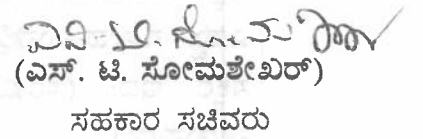 (ಎಸ್. ಟಿ. ಸೋಮಶೇಖರ್)
ಸಹಕಾರ ಸಚಿವರು